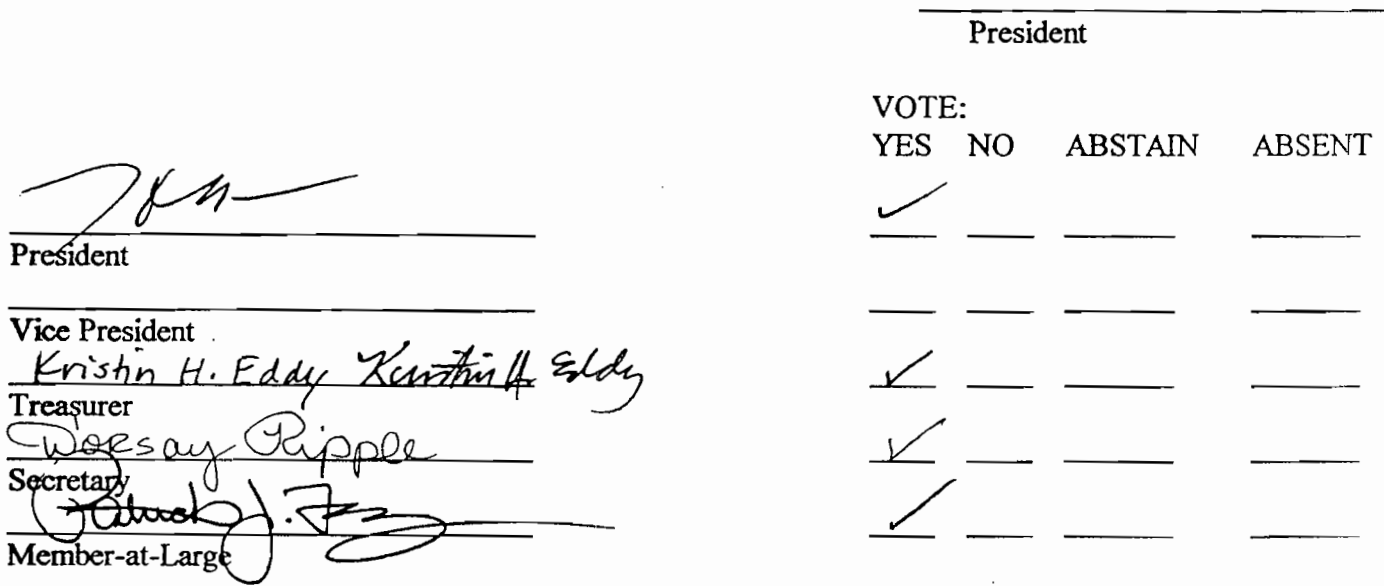 President
VOTE:
YES NO ABSTAIN ABSENT
President
Vice President
Kristin H. Eddy Kristin H. Eddy
Treasurer
Dorsay Ripple
Secretary
J.
Member-at-Large